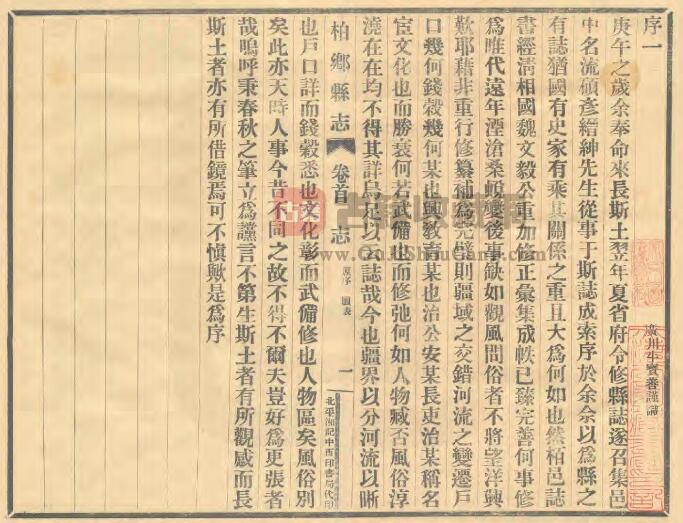 序一
庚午之歲余奉命來長斯土翌年夏省府令修縣誌遂召集邑
中名流碩彥縉紳先生從事于斯誌成索序於余余以為縣之
有誌猶國有史家有乘其關係之重且大為何如也然柏邑誌
書經清相國魏文毅公重加修正彙集成帙已臻完善何事修
為唯代遠年湮滄桑蛻變後事缺如觀風問俗者不將望洋興
歎耶藉非重行修纂補為完璧則疆域之交錯河流之變遷戶
口幾何錢穀幾何某也興教育某也治公安某長吏治某稱名
宦文化也而勝衰何若武備也而修弛何如人物臧否風俗淳
澆在在均不得其詳烏足以云誌哉今也疆界以分河流以晰
柏鄉縣志
卷首
志
原序
圖表
一
北平湘記中西印書局代印
也戶口詳而錢穀悉也文化彰而武備修也人物區矣風俗別
矣此亦天時人事今昔不同之故不得不爾夫豈好為更張者
哉嗚呼秉春秋之筆立為讜言不第生斯土者有所觀感而長
斯土者亦有所借鏡焉可不慎歟是為序